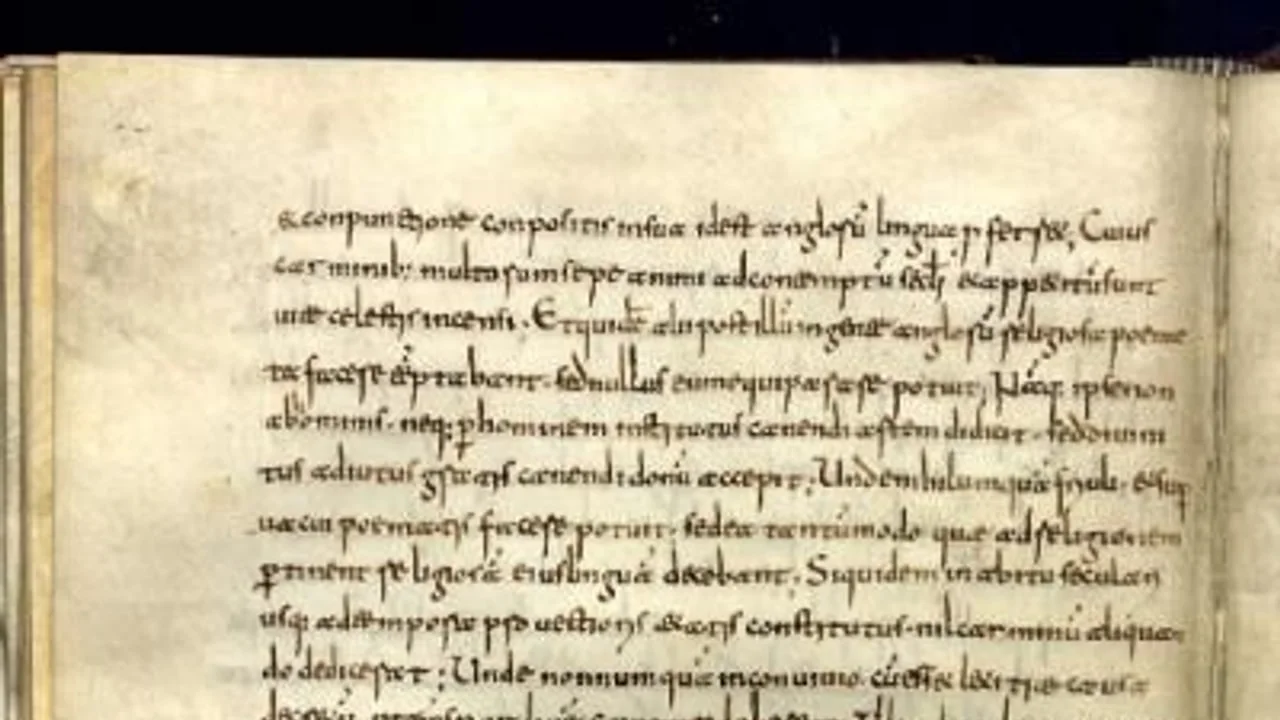 & conpunctione conpositis in sua id est anglorū lingua pferret; Cuius
carminib; multorum sepe animi ad contemptū sęcli & appetitū sunt
uitae celestis incensi. Et quidē alii post illū in gente anglorū religiosa poema
ta facere tēptabant. sed nullus eum equiparare potuit; Nāq; ipse non
ab hominib. neq; p hominem institutus canendi artem didicit. sed diuini
tus adiutus gratis canendi donū accepit; Unde nihil umquā friuoli. et sup
uacui poematis facere potuit. sed ea tantūmodo quae ad religionem
ptinent religiosā eius linguā decebant; Siquidem in abitu sęculari
usq; ad tempora puectioris aetatis constitutus. nil carminū aliquan
do dedicerat; Unde nonnumquā in conuiuio. cū esset laetitiae causa